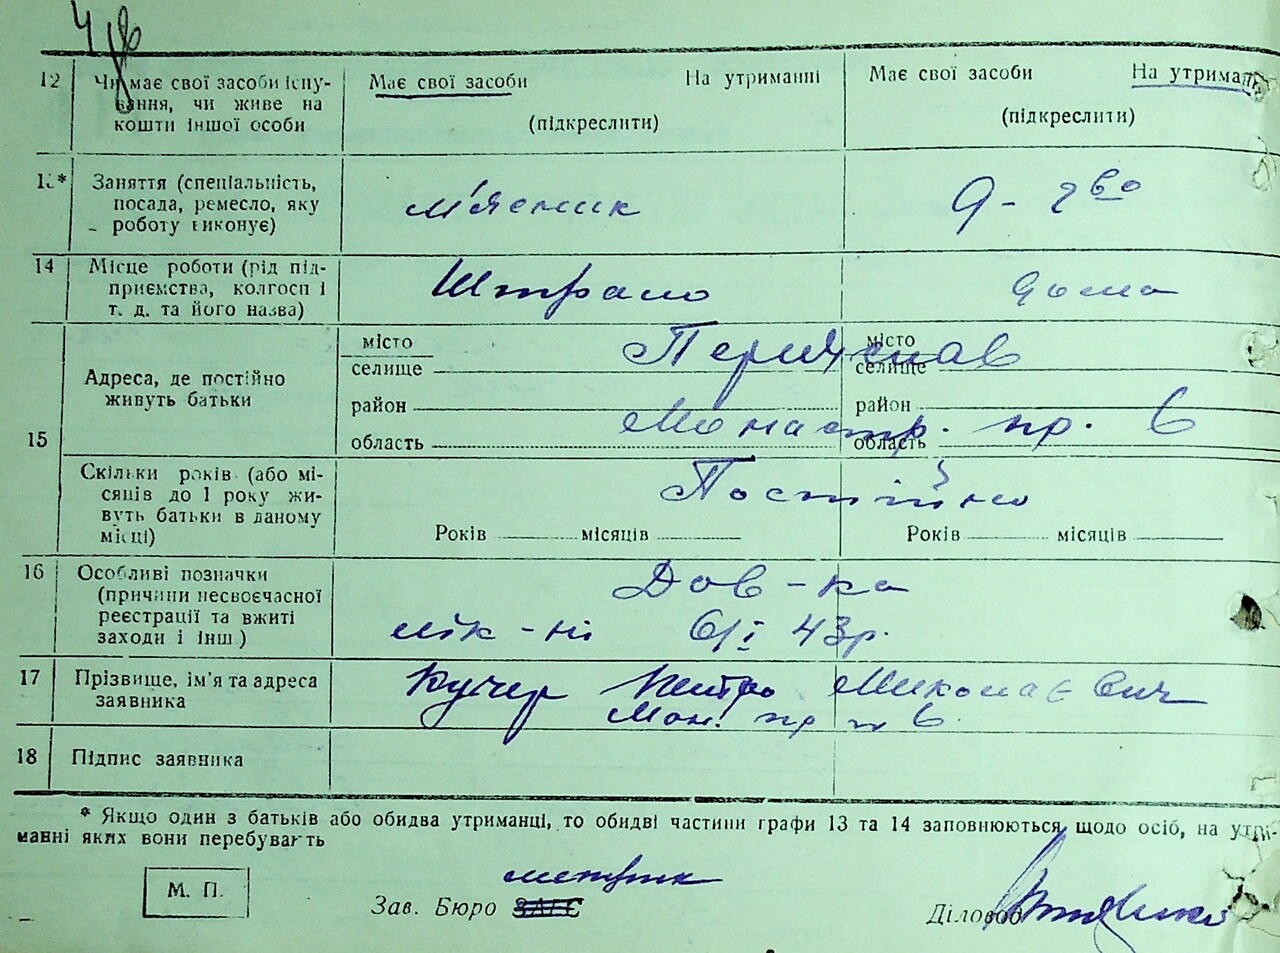 12 Чи має свої засоби існу-
вання, чи живе на
кошти іншої особи
Має свої засоби На утриманні
(підкреслити)
Має свої засоби На утриман
(підкреслити)
13* Заняття (спеціальність,
посада, ремесло, яку
роботу виконує)
м'ясник
Д-гво
14 Місце роботи (рід під-
приємства, колгосп і
т. д. та його назва)
дома
15
Адреса, де постійно
живуть батьки
місто
селище
район
область
місто
селище
район
область
Монастр. пр. 6
Скільки років (або мі-
сяців до 1 року жи-
вуть батьки в даному
місці)
Постійно
Років місяців
Років місяців
16 Особливі позначки
(причини несвоєчасної
реєстрації та вжиті
заходи і інш.)
Дов-ка
лік-ні 6/I 43р.
17 Прізвище, ім'я та адреса
заявника
Кучер Петро Миколаєвич
Мон. пр 6
18 Підпис заявника
* Якщо один з батьків або обидва утриманці, то обидві частини графи 13 та 14 заповнюються щодо осіб, на утри-
манні яких вони перебувають
М. П.
метрик
Зав. Бюро ЗАГС
Діловод